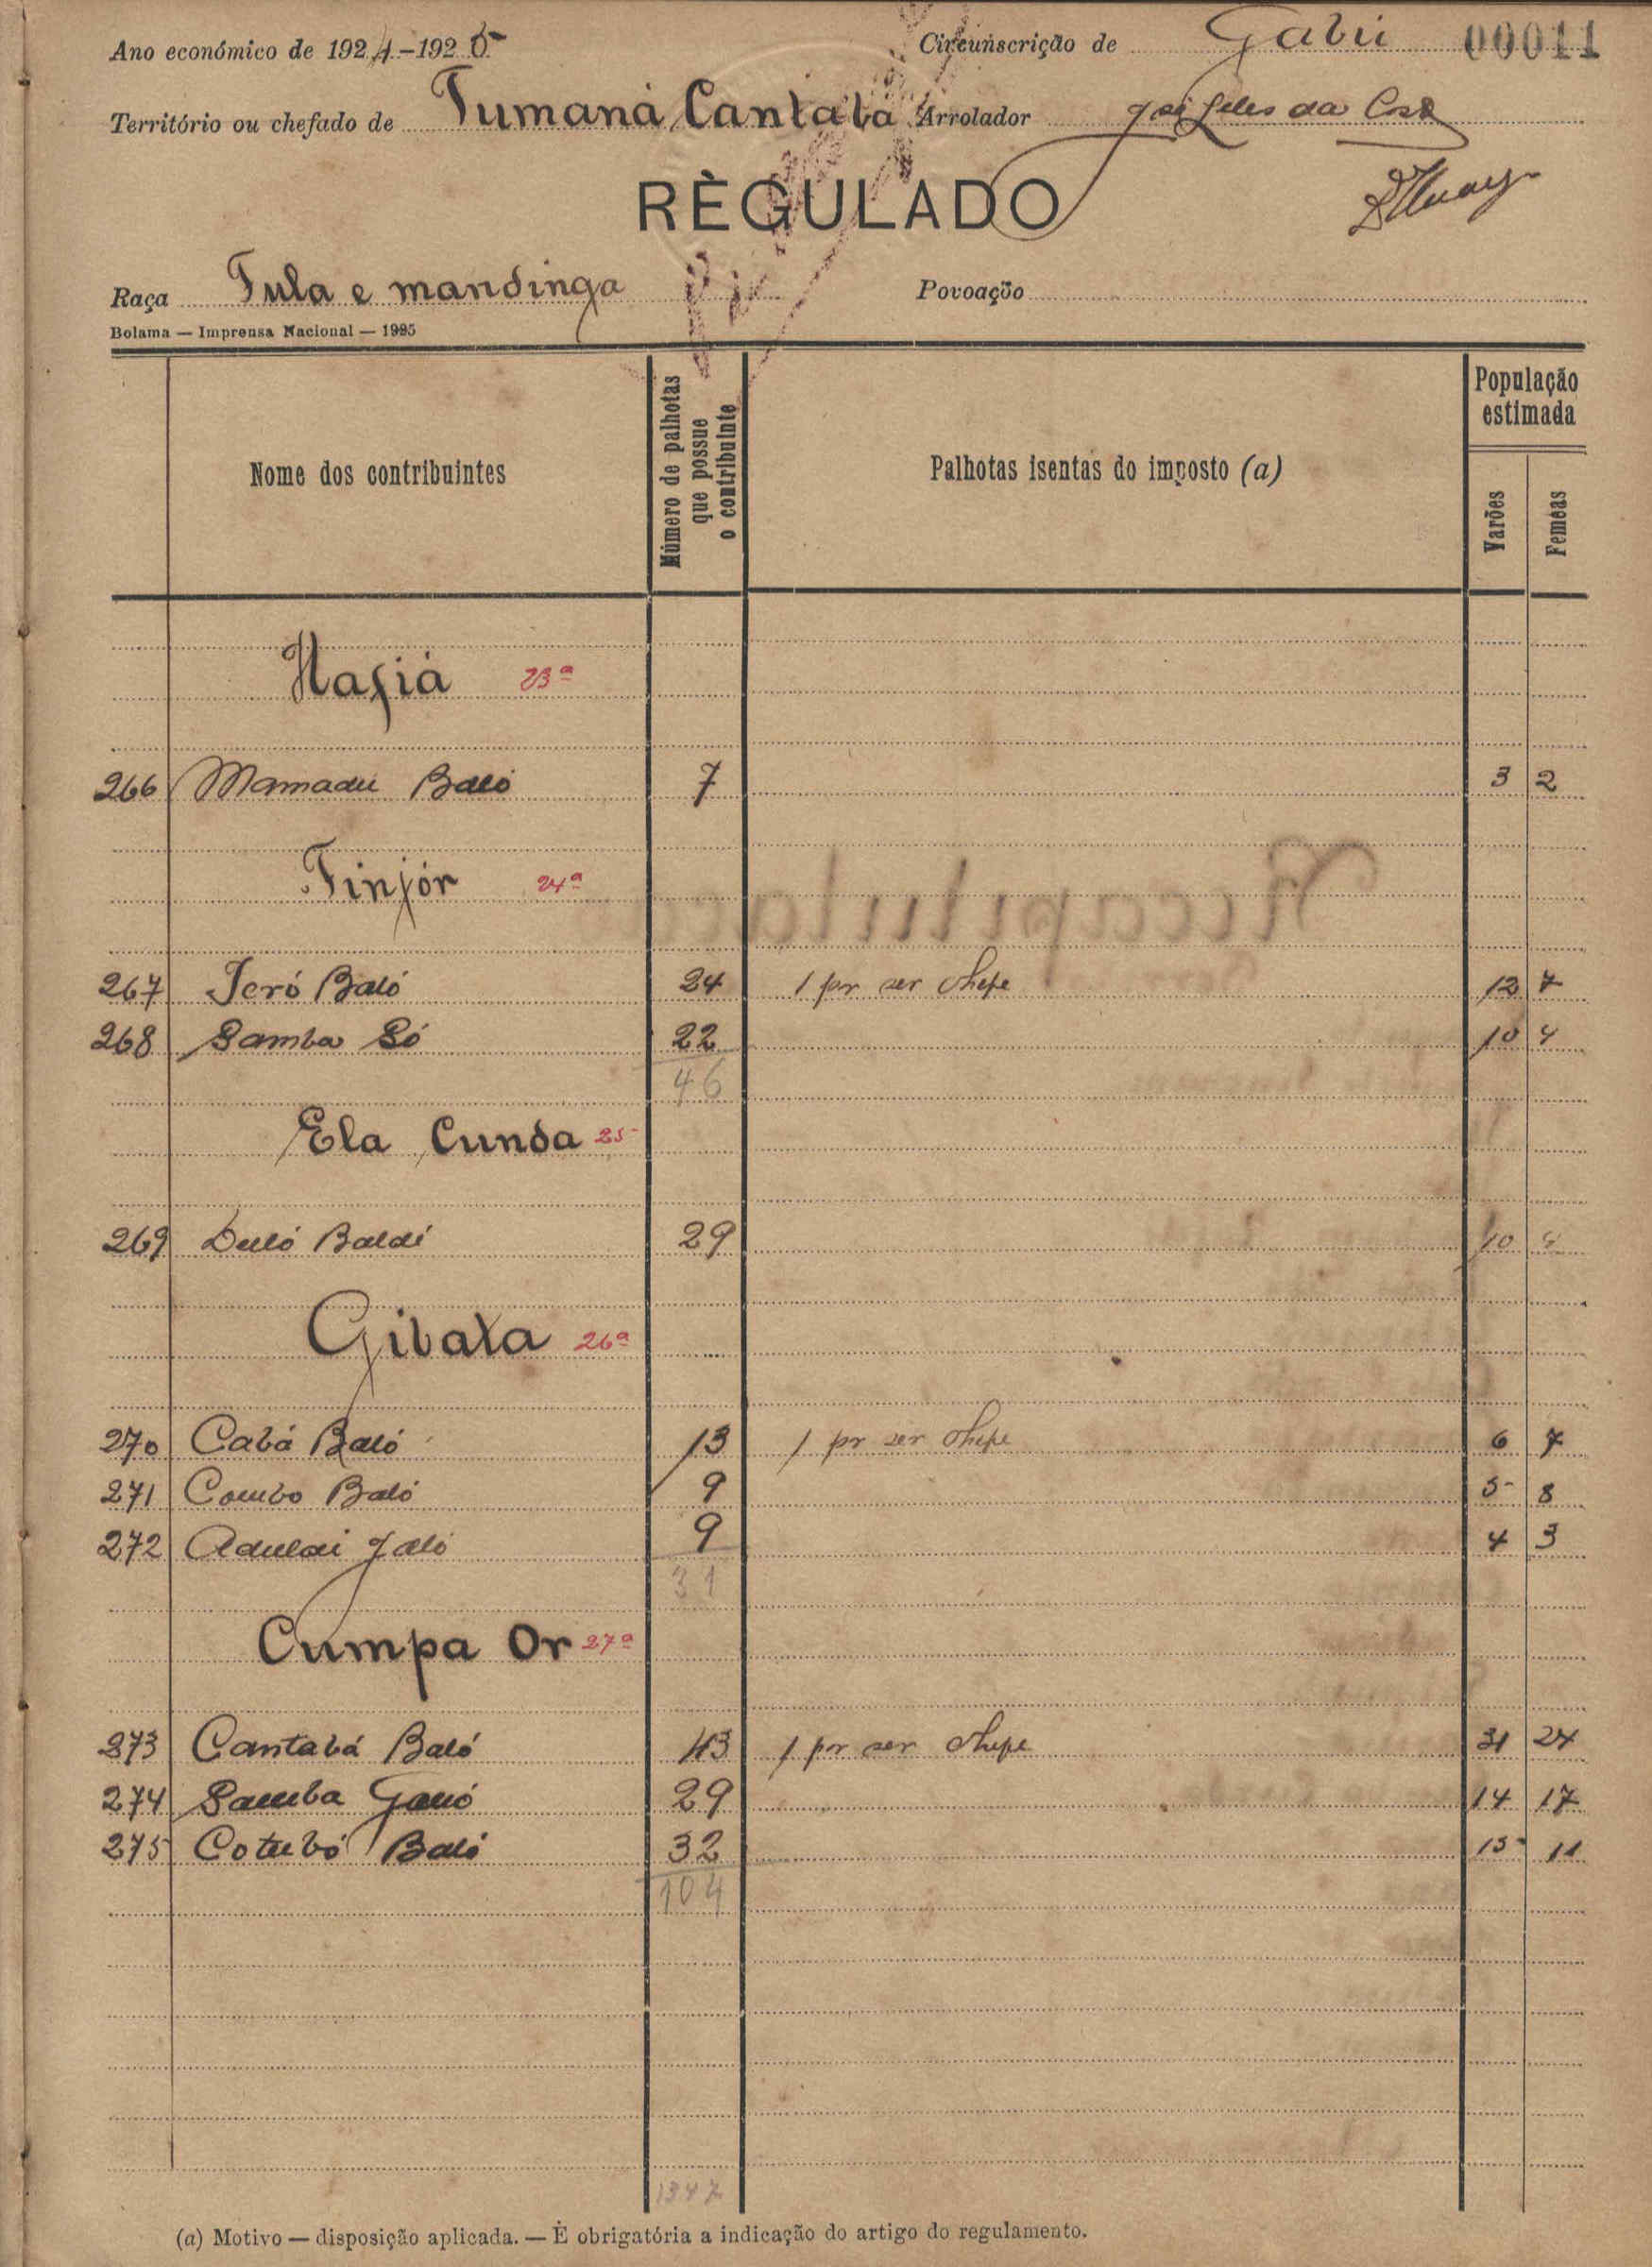 Ano económico de 1924-1925 Circunscrição de Gabú 00011
Território ou chefado de Tumaná Cantabá Arrolador da Costa
RÈGULADO
Raça Fula e mandinga Povoação
Bolama — Imprensa Nacional — 1925
Nome dos contribuintes
Número de palhotas
que possue
o contribuinte
Palhotas isentas do imposto (a)
População
estimada
Varões
Femeas
Hafiá 23ª
266 Mamadú Baló 7 3 2
Finjór 24ª
267 Jeró Baló 24 1 por ser chefe 12 7
268 Samba Só 22 10 4
46
Ela Cunda 25
269 Duló Baldé 29 10 4
Gibata 26ª
270 Cabá Baló 13 1 por ser chefe 6 7
271 Combo Baló 9 5 8
272 Adulai Jaló 9 4 3
31
Cumpa Or 27ª
273 Cantabá Baló 43 1 por ser chefe 31 24
274 Samba Ganó 29 14 17
275 Cotubó Baló 32 15 11
104
1347
(a) Motivo — disposição aplicada. — É obrigatória a indicação do artigo do regulamento.